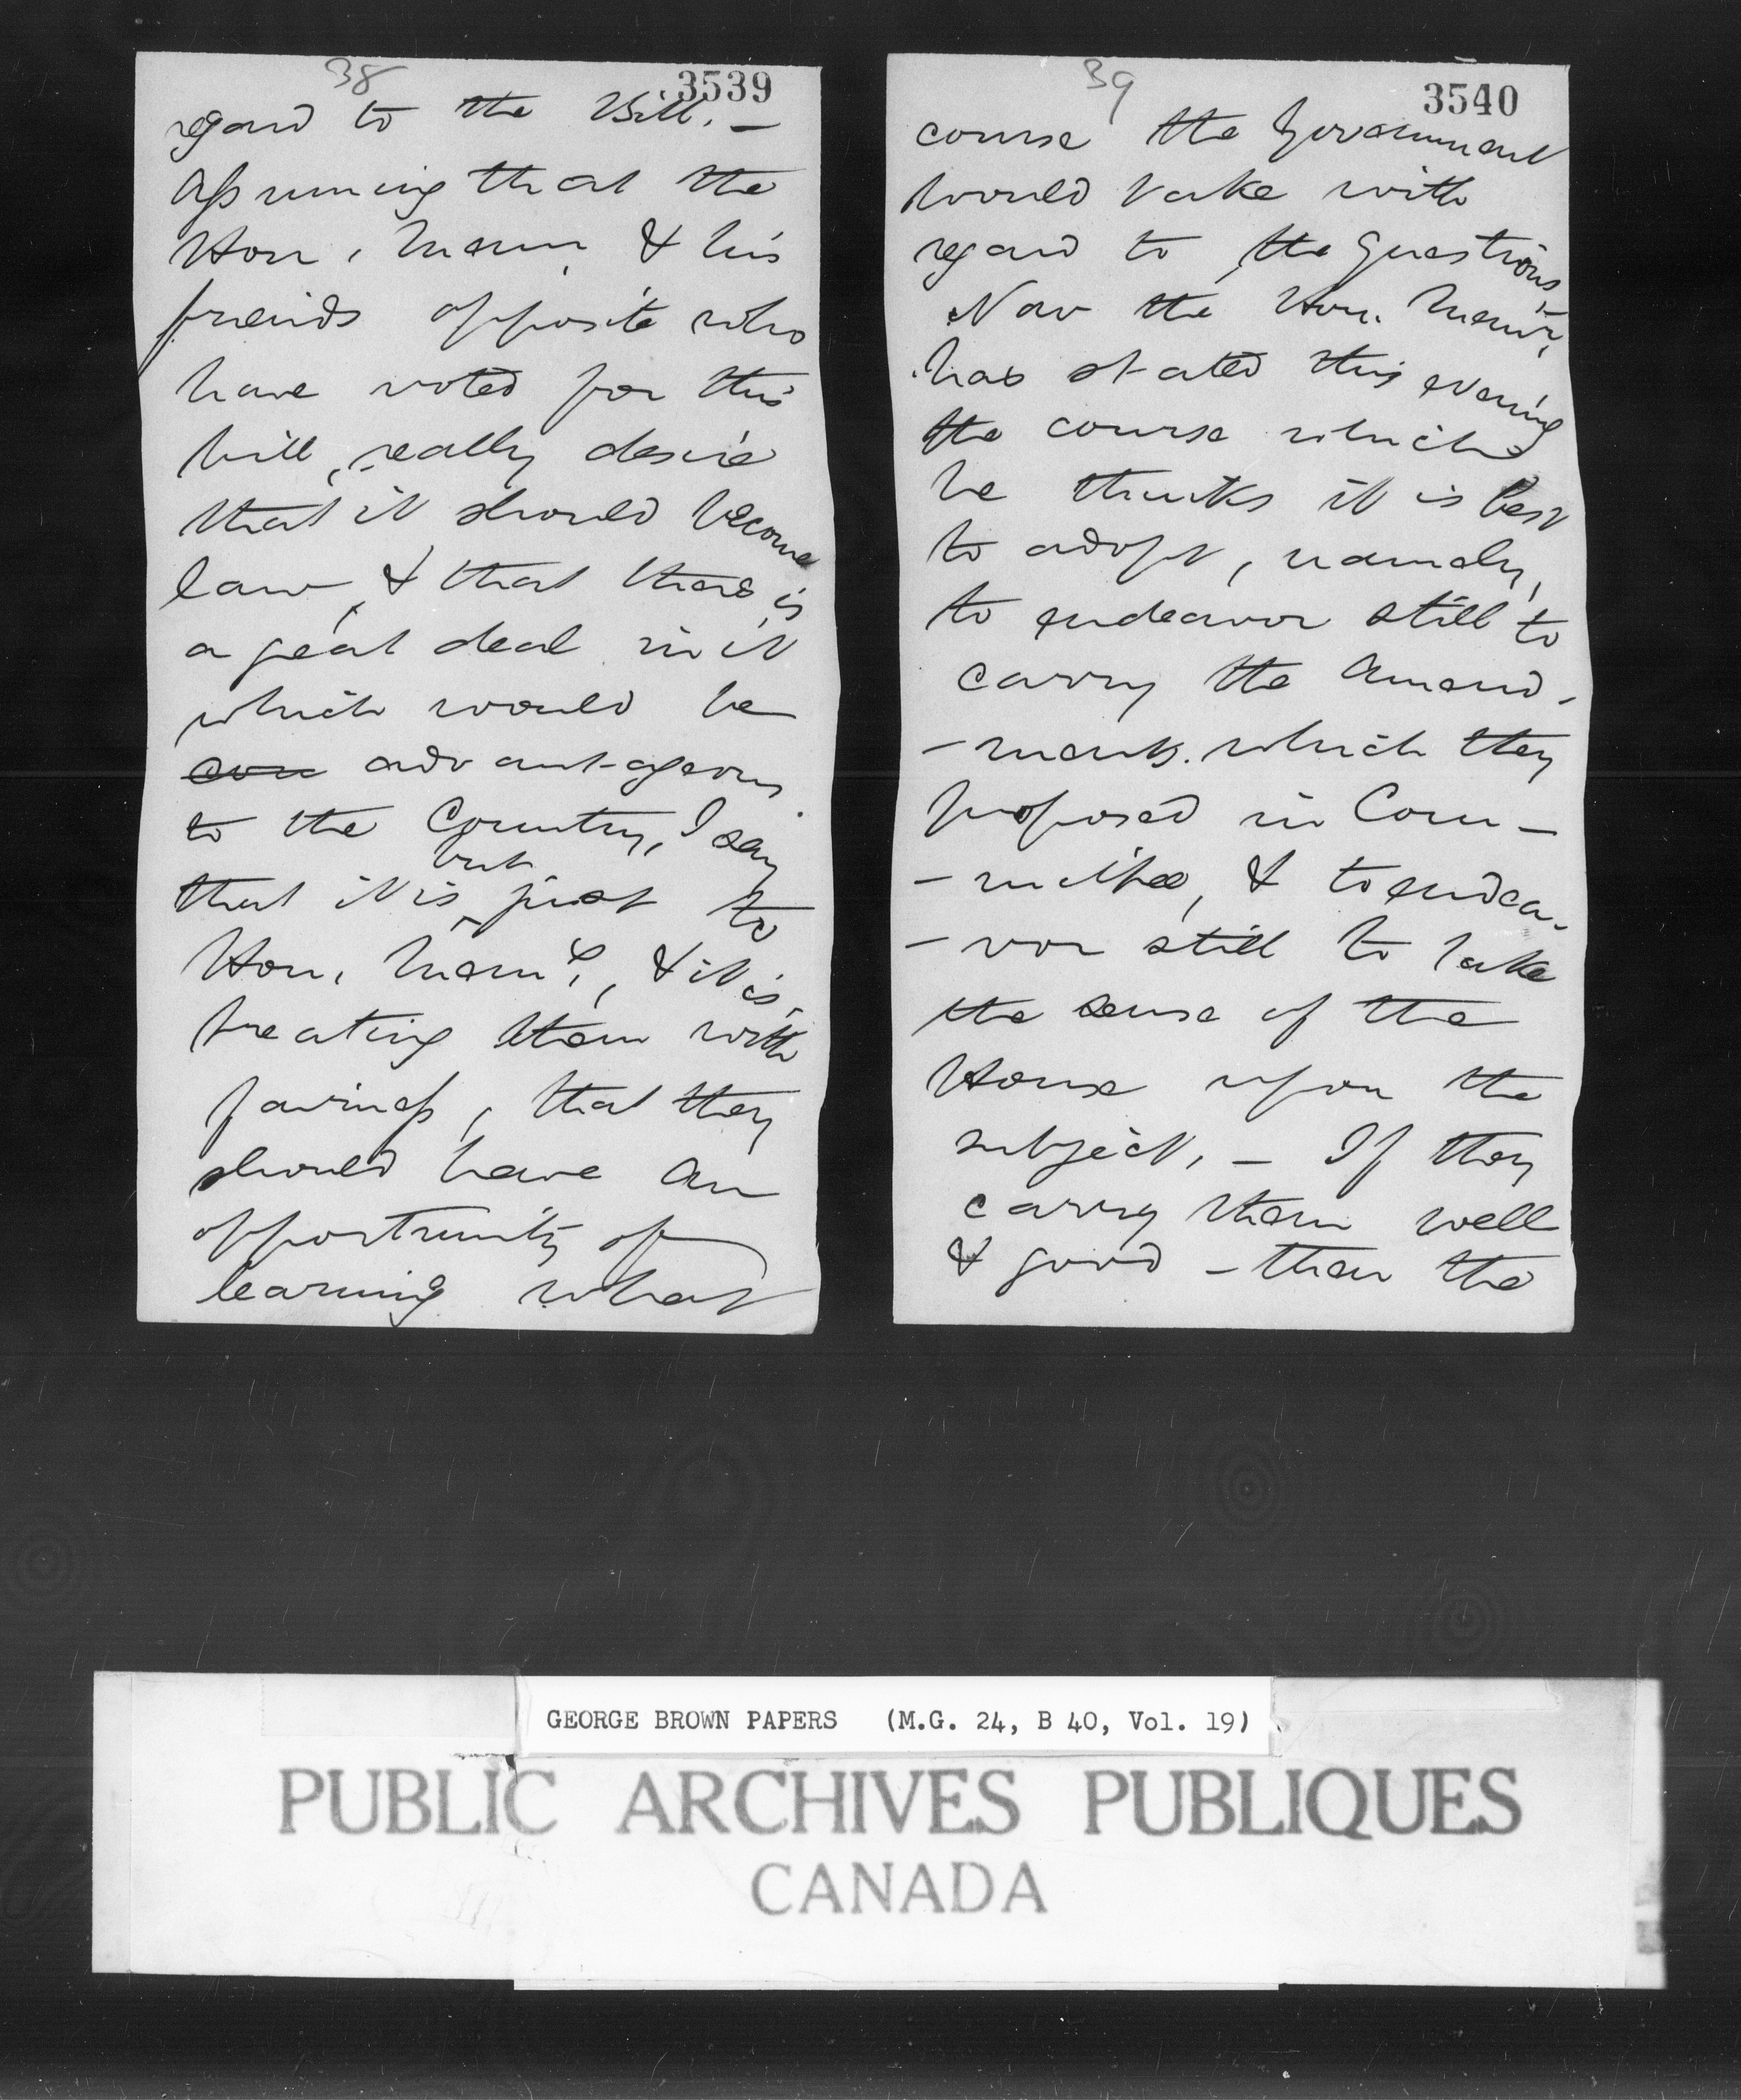 38
3539
regard to the Bill. —
Assuming that the
Hon. Mem. & his
friends opposite who
have voted for this
bill, really desire
that it should become
law, & that there is
a great deal in it
which would be
con advantageous
to the Country, I say
but
that it is ^ just to
Hon. Mem.s, & it is
treating them with
fairness, that they
should have an
opportunity of
learning what
39
3540
course the Government
would take with
regard to the Questions.
Now the Hon. Memr.
has stated this evening
the course which
he thinks it is best
to adopt, namely,
to endeavor still to
carry the Amend-
-ments which they
proposed in Com-
-mittee, & to endea-
-vor still to take
the sense of the
House upon the
subject. — If they
carry them well
& good — then the
GEORGE BROWN PAPERS (M.G. 24, B 40, Vol. 19)
PUBLIC ARCHIVES PUBLIQUES
CANADA